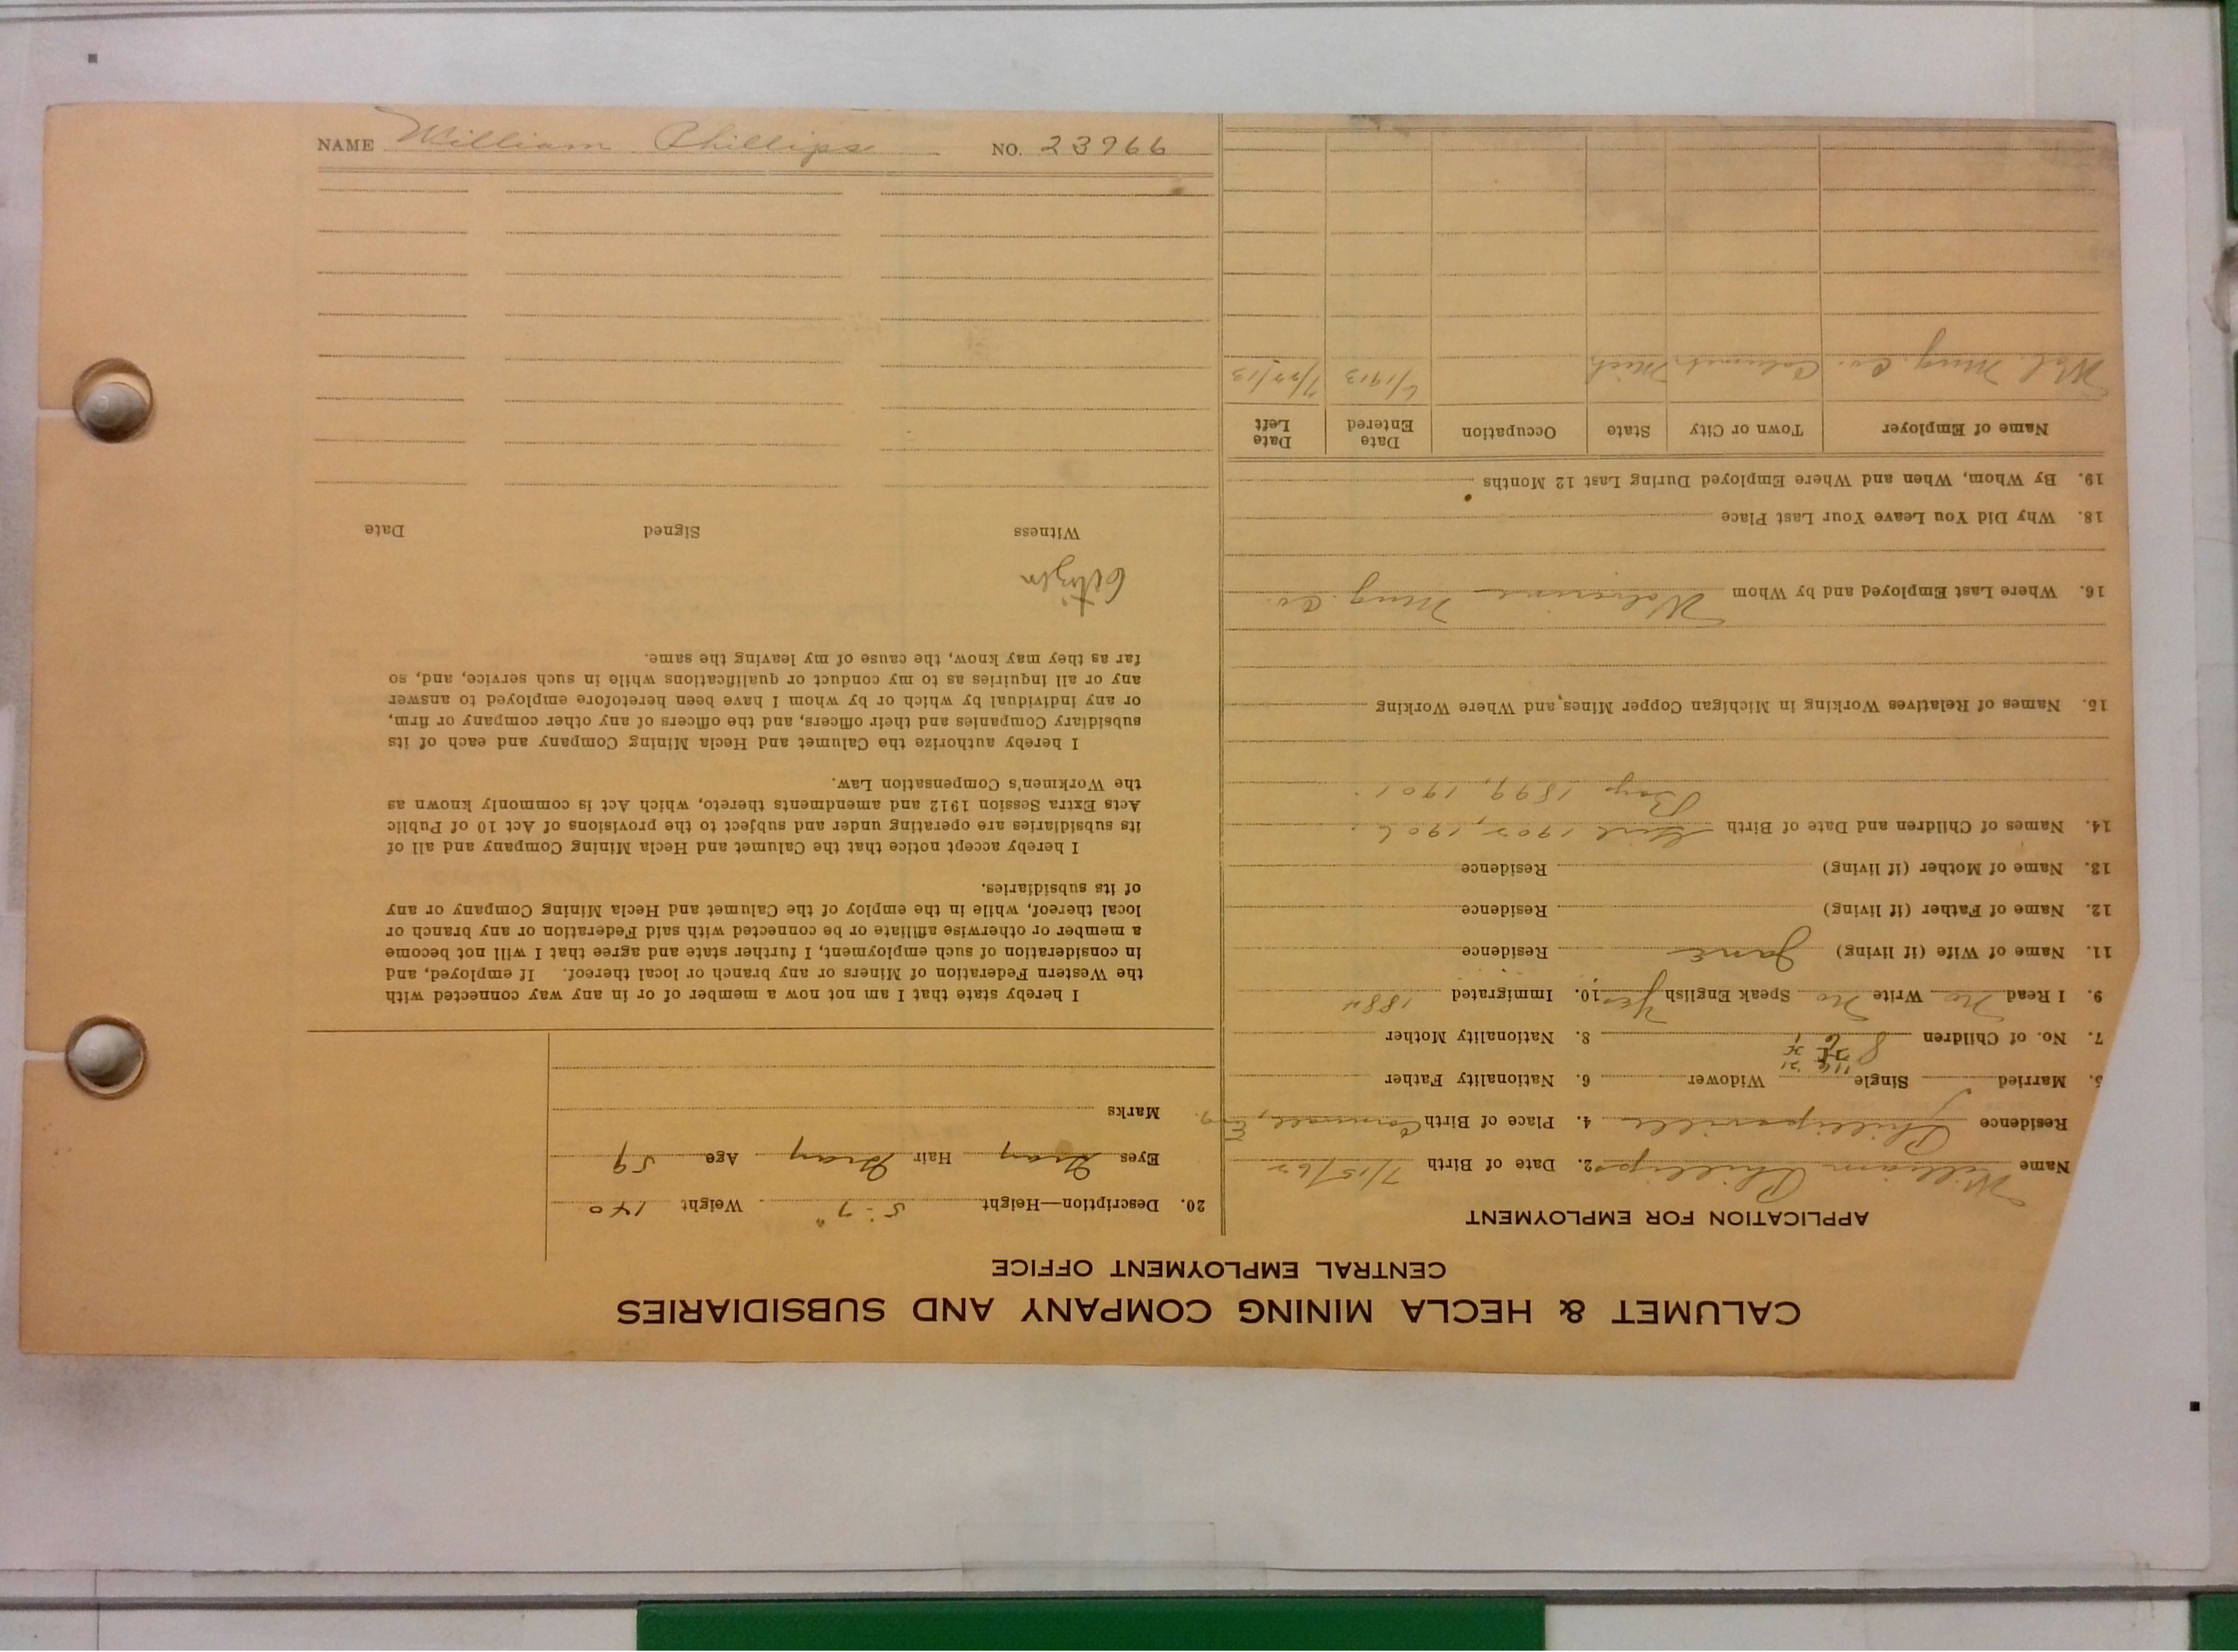 NAME William Phillips NO. 23966
CALUMET & HECLA MINING COMPANY AND SUBSIDIARIES
CENTRAL EMPLOYMENT OFFICE
APPLICATION FOR EMPLOYMENT
Name William Phillips 2. Date of Birth 7/15/62
Residence Phillipsville 4. Place of Birth Cornwall, Eng.
5. Married Single Widower 6. Nationality Father
7. No. of Children 8 8. Nationality Mother
9. I Read No Write No Speak English Yes 10. Immigrated
11. Name of Wife (if living) Jane Residence
12. Name of Father (if living) Residence
13. Name of Mother (if living) Residence
14. Names of Children and Date of Birth Girl 1902, 1906.
Boys 1899, 1901.
15. Names of Relatives Working in Michigan Copper Mines, and Where Working
16. Where Last Employed and by Whom Wolverine Mng. Co.
18. Why Did You Leave Your Last Place
19. By Whom, When and Where Employed During Last 12 Months
Name of Employer Town or City State Occupation Date Entered Date Left
Wol. Mng. Co. Calumet Mich 6/1913 7/22/13
20. Description—Height 5-7" Weight 140
Eyes Gray Hair Gray Age 59
Marks
I hereby state that I am not now a member of or in any way connected with
the Western Federation of Miners or any branch or local thereof. If employed, and
in consideration of such employment, I further state and agree that I will not become
a member or otherwise affiliate or be connected with said Federation or any branch or
local thereof, while in the employ of the Calumet and Hecla Mining Company or any
of its subsidiaries.
I hereby accept notice that the Calumet and Hecla Mining Company and all of
its subsidiaries are operating under and subject to the provisions of Act 10 of Public
Acts Extra Session 1912 and amendments thereto, which Act is commonly known as
the Workmen's Compensation Law.
I hereby authorize the Calumet and Hecla Mining Company and each of its
subsidiary Companies and their officers, and the officers of any other company or firm,
or any individual by which or by whom I have been heretofore employed to answer
any or all inquiries as to my conduct or qualifications while in such service, and, so
far as they may know, the cause of my leaving the same.
Citizen
Witness Signed Date